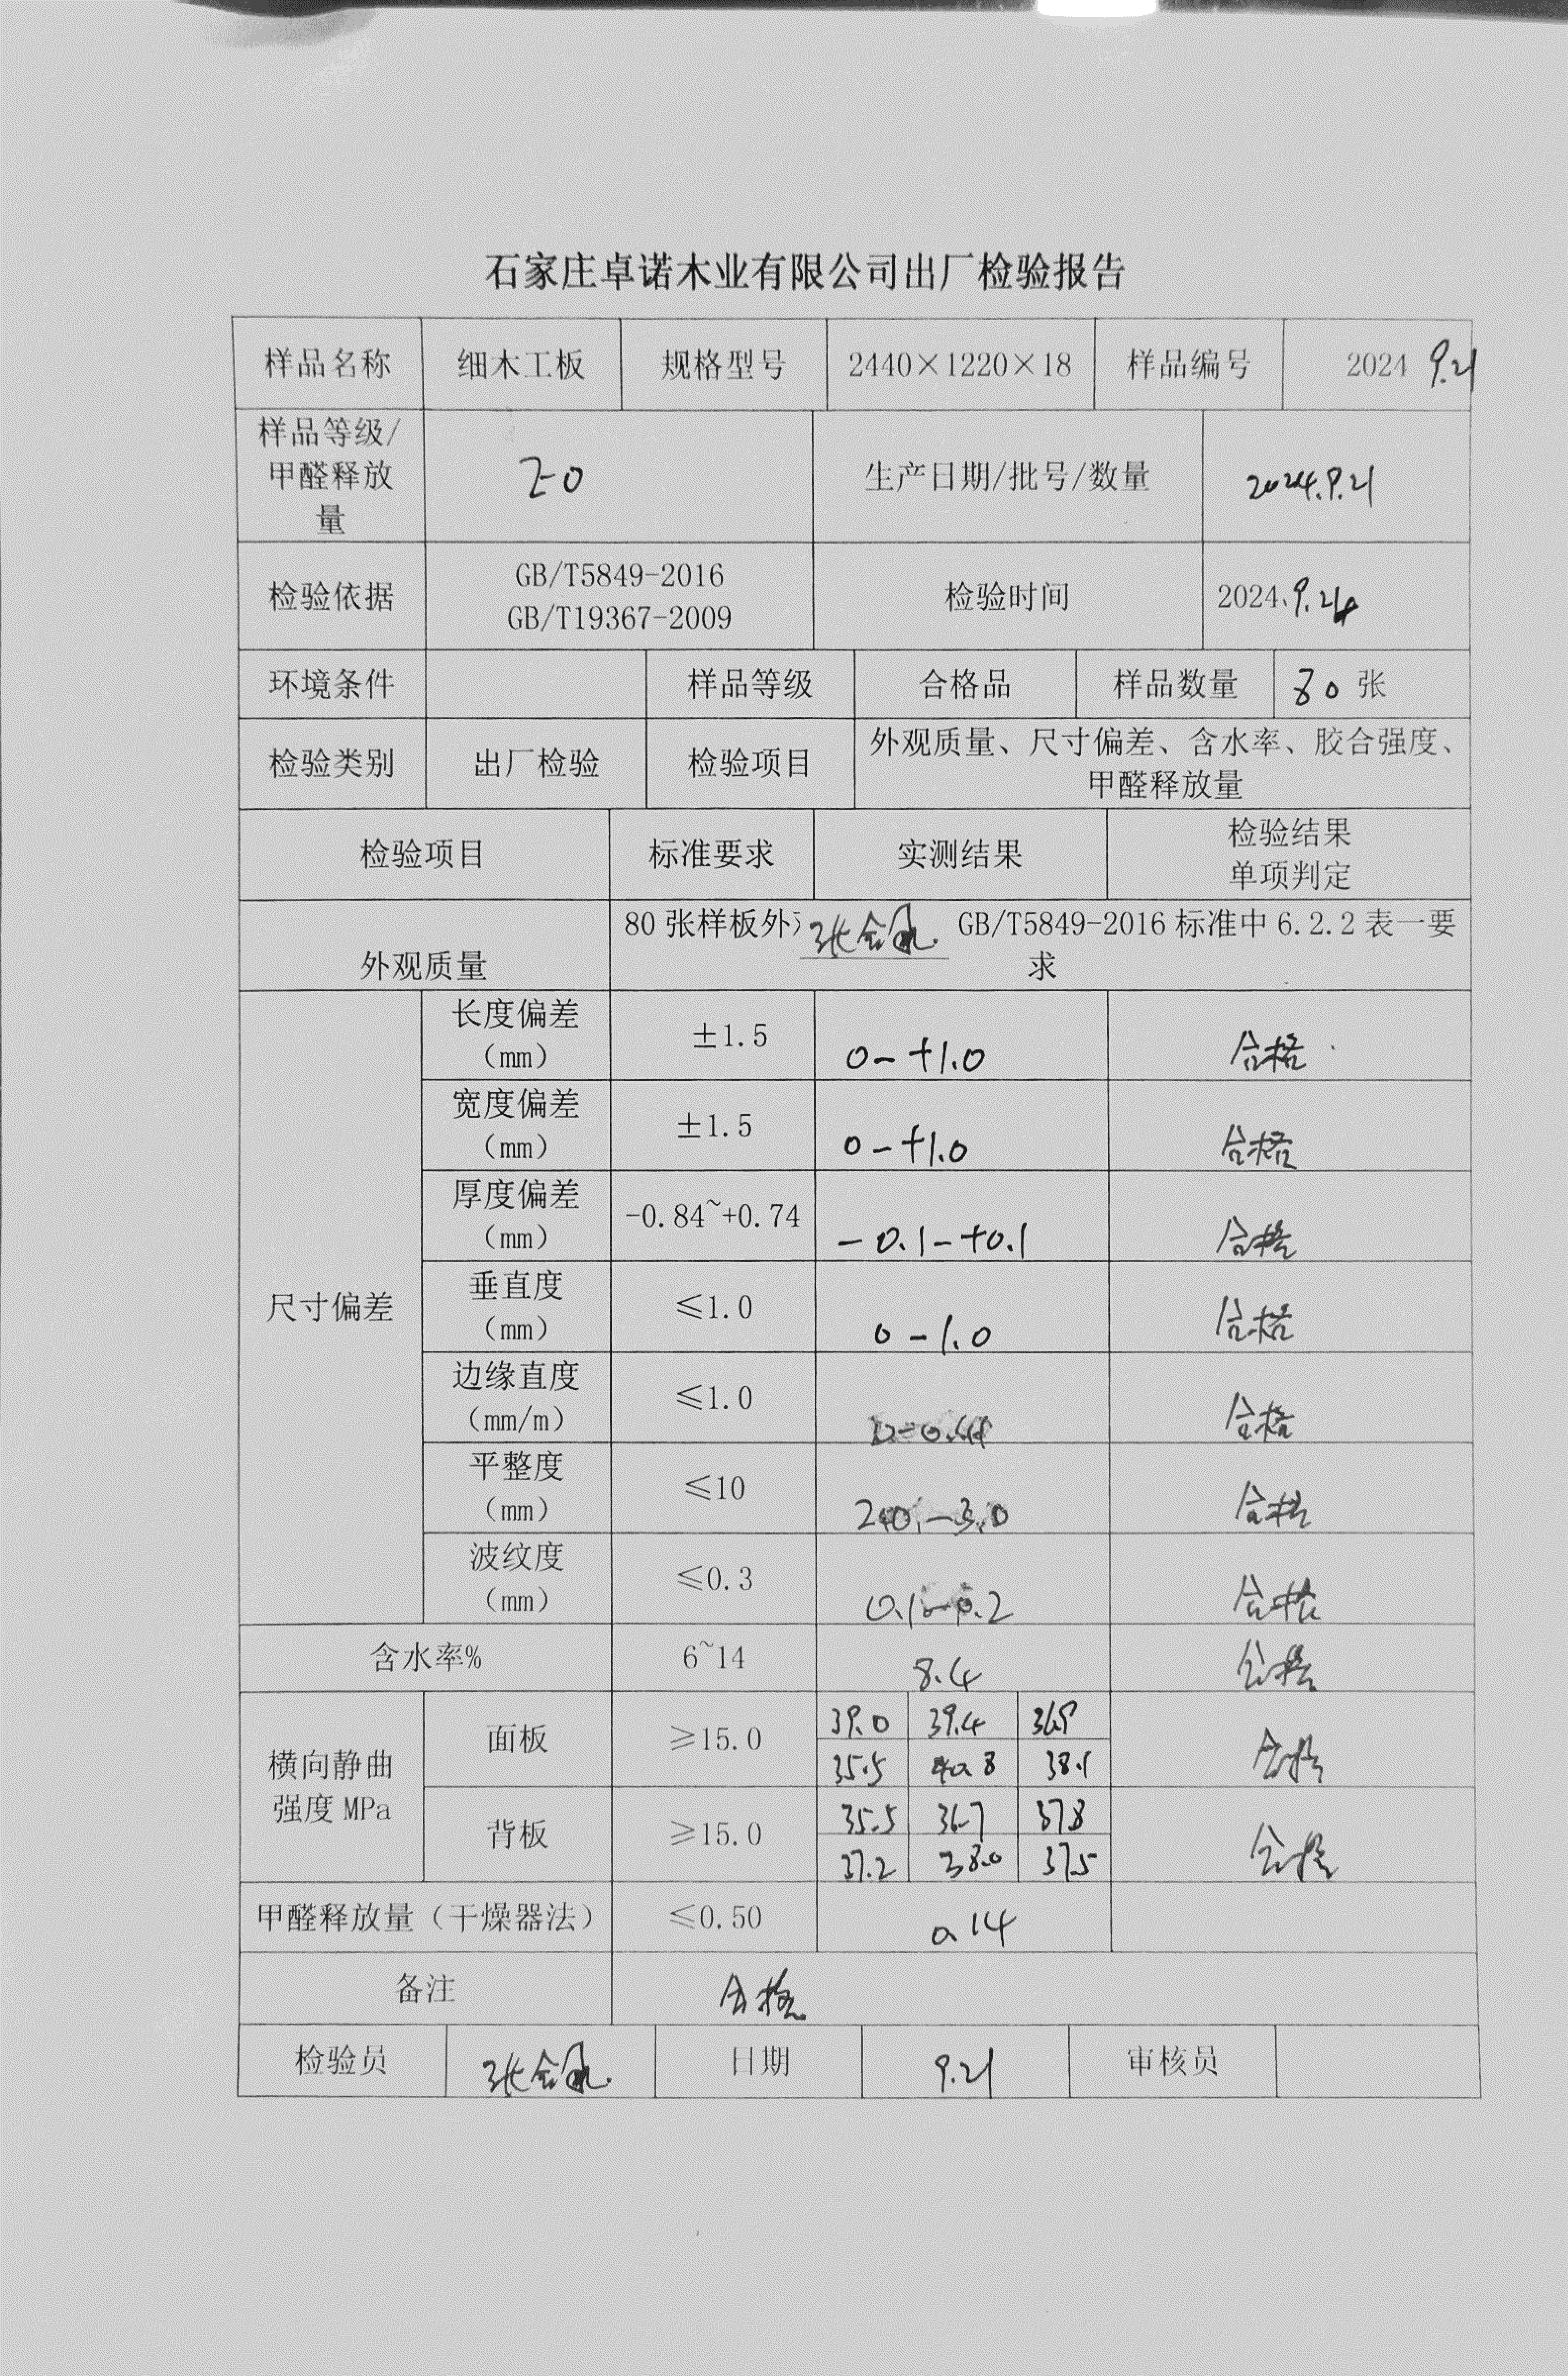 石家庄卓诺木业有限公司出厂检验报告
样品名称 细木工板 规格型号 2440×1220×18 样品编号 2024 9.21
样品等级/
甲醛释放
量
E0 生产日期/批号/数量 2024.9.21
检验依据
GB/T5849-2016
GB/T19367-2009
检验时间 2024.9.24
环境条件 样品等级 合格品 样品数量 80 张
检验类别 出厂检验 检验项目
外观质量、尺寸偏差、含水率、胶合强度、
甲醛释放量
检验项目 标准要求 实测结果
检验结果
单项判定
外观质量
80 张样板外 GB/T5849-2016 标准中 6.2.2 表一要
求
尺寸偏差
长度偏差
（mm）
±1.5 0-+1.0 合格
宽度偏差
（mm）
±1.5 0-+1.0 合格
厚度偏差
（mm）
-0.84~+0.74 -0.1-+0.1 合格
垂直度
（mm）
≤1.0 0-1.0 合格
边缘直度
（mm/m）
≤1.0 合格
平整度
（mm）
≤10 合格
波纹度
（mm）
≤0.3 0.1-0.2 合格
含水率% 6~14 8.4 合格
横向静曲
强度 MPa
面板 ≥15.0
39.0 39.4 36.9
35.5 40.8 38.1
合格
背板 ≥15.0
35.5 36.7 37.8
37.2 38.0 37.5
合格
甲醛释放量（干燥器法） ≤0.50 0.14
备注 合格
检验员 日期 9.21 审核员